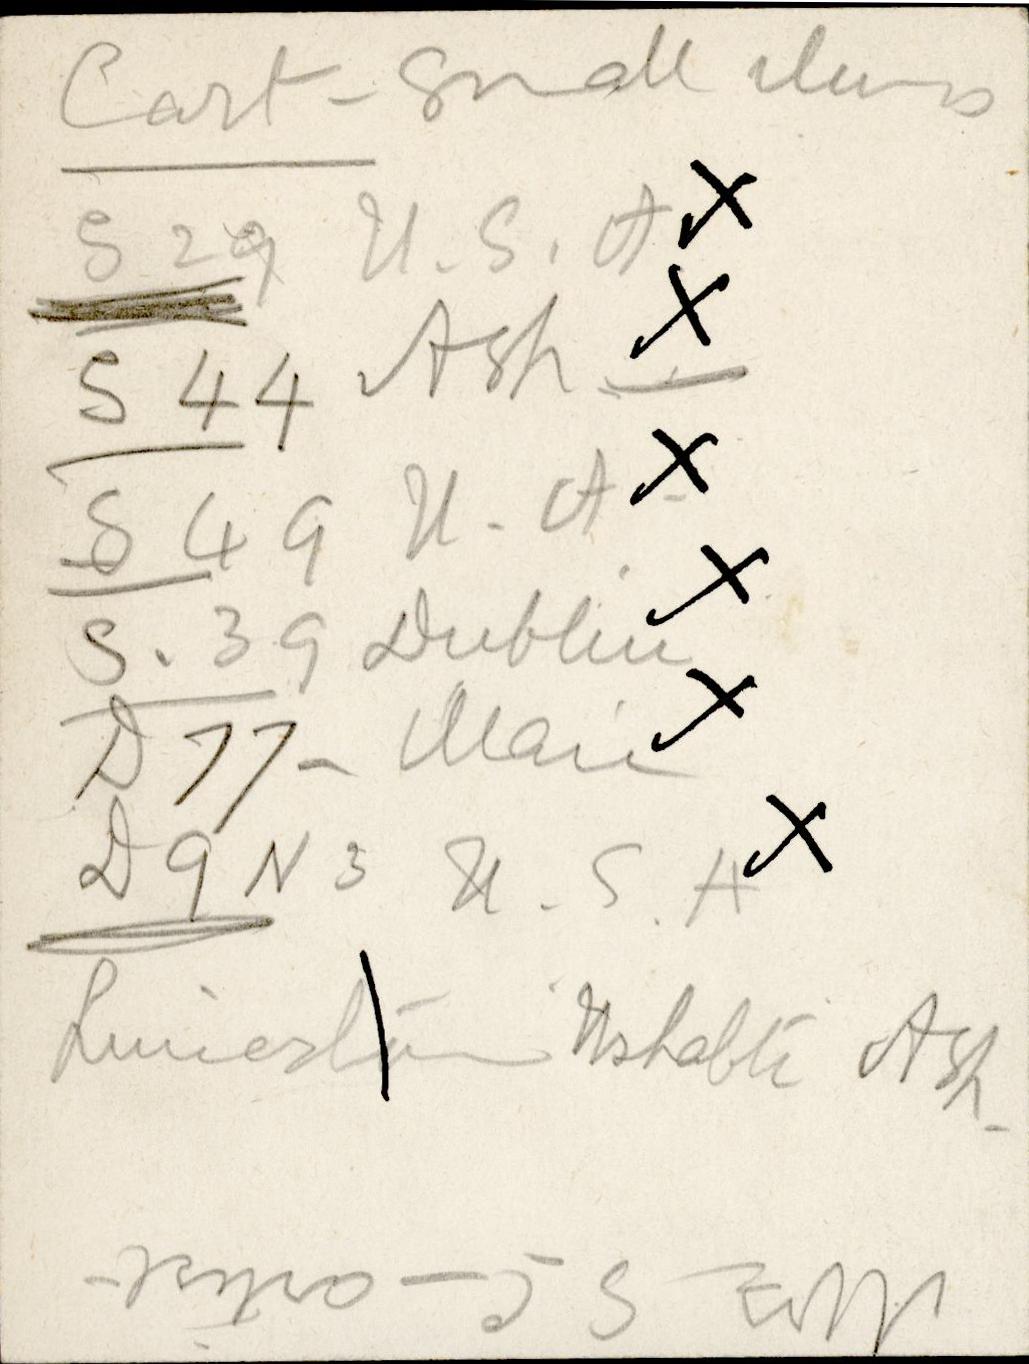 Cart - Small
S 29 U.S.A X
S 44 Ash X
S 49 U.A - X
S. 39 Dublin X
D 77 - Main X
D 9 N 3 U.S.A X
Limestone Ushabti Ash
S 5 -